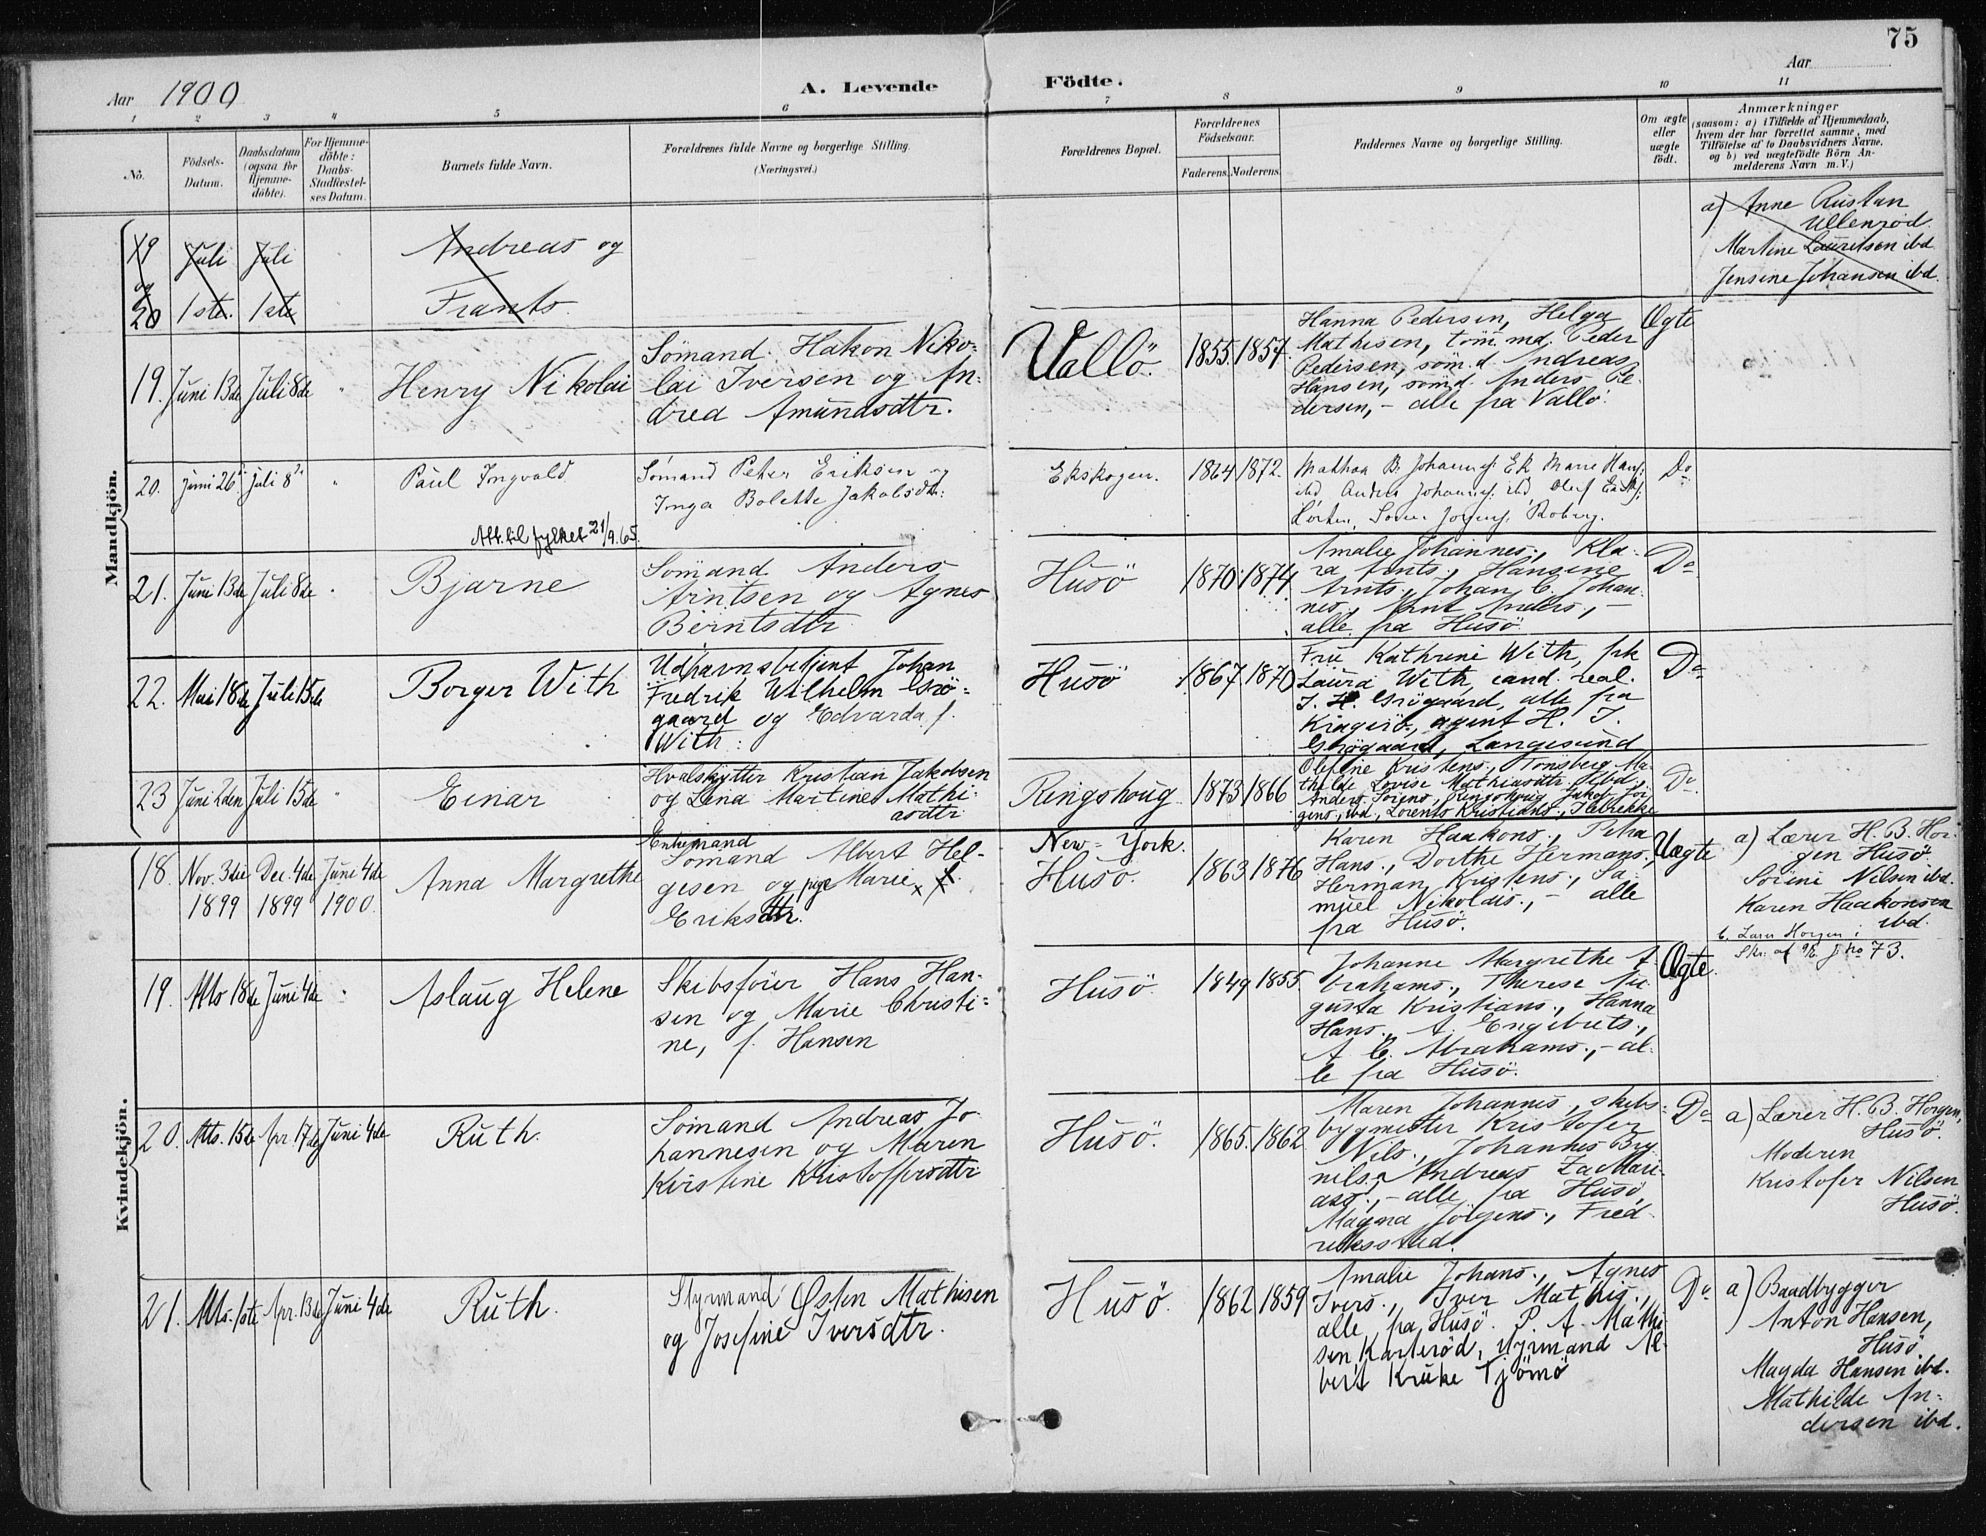 75
Aar 1900
A. Levende Födte.
Aar
1 2 3 4 5 6 7 8 9 10 11
No.
Födsels-
Datum.
Daabsdatum
(ogsaa for
Hjemme-
döbte).
For Hjemme-
döbte:
Daabs-
Stadfæstel-
ses Datum.
Barnets fulde Navn.
Forældrenes fulde Navne og borgerlige Stilling.
(Næringsvei.)
Forældrenes Bopæl.
Forældrenes
Födselsaar.
Faderens. Moderens.
Faddernes Navne og borgerlige Stilling.
Om ægte
eller
uægte
födt.
Anmærkninger
(saasom: a) i Tilfælde af Hjemmedaab,
hvem der har forrettet samme, med
Tilföielse af to Daabsvidners Navne,
og b) ved uægtefödte Börn An-
melderens Navn m. V.)
Mandkjön.
19
og
20
Juli
1ste.
Juli
1ste
Andreas og
Frants
a) Anne Rustan
Ullenrød.
Martine Lauritsen ibd
Jensine Johansen ibd.
19. Juni 13de Juli 8de " Henry Nikolai
Sömand Hakon Niko-
lai Iversen og An-
drea Amundsdtr.
Vallö. 1855. 1857.
Hanna Pedersen, Helga
Mathisen, tömmd. Peder
Pedersen, söm.d. Andreas
Hansen, sömd. Anders Pe-
dersen, - alle fra Vallö.
Ægte
20. juni 26 juli 8 " Paul Ingvald
Sömand Peter Eriksen og
Inga Bolette Jakobsdtr:
Ekskogen. 1864 1872.
Johannes. Ek Marie Hans:
ibd Johannes. ibd, Oluf
Horten,
Do
Att. til fylket 21/9.65.
21. Juni 13de Juli 8de . Bjarne
Sömand Anders
Arntsen og Agnes
Berntsdtr
Husö 1870 1874
Amalie Johannes., Kla-
ra Arnts., Hansine
Arnts., Johan C. Johan-
nes., Arnt Anders., -
alle fra Husö
Do
22. Mai 18de Juli 15de Borger With
Udhavnsbetjent Johan
Fredrik Wilhelm Grö-
gaard og Edvarda f.
With.
Husö 1867 1870
Fru Kathrine With, frk
Laura With, cand. real.
J. H. Grögaard, alle fra
Kragerö, agent H. J.
Grögaard, Langesund
Do
23 Juni 2den Juli 15de " Einar
Hvalskytter Kristian Jakobsen
og Lina Martine Mathi-
asdtr
Ringshoug 1873 1866
Olefine Kristens., Tönsberg, Ma-
thilde Lovise Mathiasdtr ibd.,
Anders Sörens., Ringshoug, Jakob Jör-
gens., ibd., Lorents Kristians.,
Do
Kvindekjön.
18. Nov. 3die
1899
Dec. 4de
1899
Juni 4de
1900.
Anna Margrethe
Enkemand
Sömand Albert Hel-
gesen og pige Marie x x
Eriksdtr.
New-York.
Husö. 1863 1876
Karen Haakons., Petra
Hans., Dorthe Hermans.,
Herman Kristens., Sa-
muel Nikolais., - alle
fra Husö.
Uægte
a) Lærer H. B. Hor-
gen Husö.
Sörine Nilsen ibd.
Karen Haakonsen
ibd.
b. Lærer Horgen i
Skr. af 9/6 J no 73.
19. Mts 18de Juni 4de . Aslaug Helene
Skibsförer Hans Han-
sen og Marie Christi-
ne, f. Hansen
Husö. 1849 1855
Johanne Margrethe A-
brahams., Therese Au-
gusta Kristians., Hanna
Hans., A. Engebrets.,
A. C. Abrahams., - al-
le fra Husö.
Ægte.
20. Mts. 15de Apr. 17de Juni 4de Ruth.
Sömand Andreas Jo-
hannesen og Maren
Kristine Kristoffersdtr
Husö. 1865. 1862.
Maren Johannes., skibs-
bygmester Kristofer
Nils., Johannes Bry-
nils., Andreas Zachari-
ass., - alle fra Husö,
Magna Jörgens., Fred-
riksstad.
Do
a) Lærer H. B. Horgen,
Husö.
Moderen
Kristofer Nilsen
Husö.
21. Mts. 1ste Apr. 13de Juni 4de Ruth.
Styrmand Østen Mathisen
og Josefine Iversdtr.
Husö. 1862 1859
Amalie Johans., Agnes
Ivers., Iver Mathis.,
alle fra Husö. P. A. Mathi-
sen, Karlsröd, styrmand Al-
bert Kruke Tjömö
Do
a) Baadbygger
Anton Hansen,
Husö.
Magda Hansen ibd.
Mathilde An-
dersen ibd.